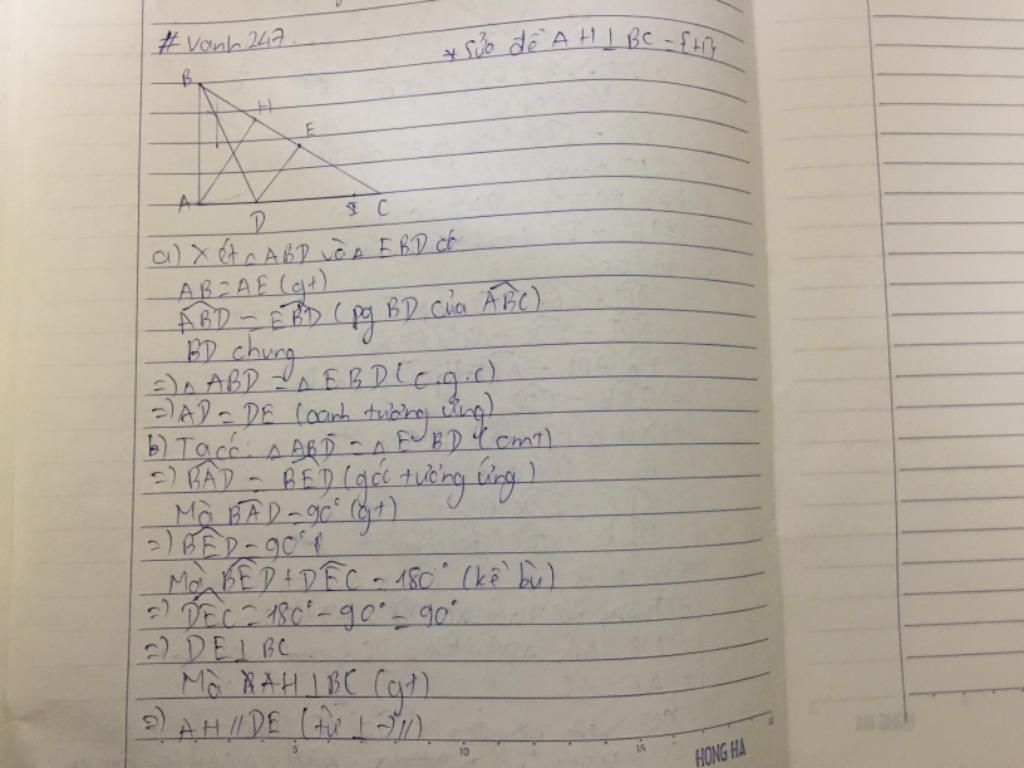 # Vanh 247.
* Sửa đề AH ⊥ BC = {H}
B
H
E
A
D
C
a) Xét △ ABD và △ EBD có
AB = AE (gt)
ABD = EBD (pg BD của ABC)
BD chung
=> △ ABD = △ EBD (c.g.c)
=> AD = DE (cạnh tương ứng)
b) Ta có: △ ABD = △ EBD (cmt)
=> BAD = BED (góc tương ứng)
Mà BAD = 90° (gt)
=> BED = 90°
Mà BED + DEC = 180° (kề bù)
=> DEC = 180° - 90° = 90°
=> DE ⊥ BC
Mà AH ⊥ BC (gt)
=> AH // DE (từ ⊥ -> //)
5 10 15
HONG HA